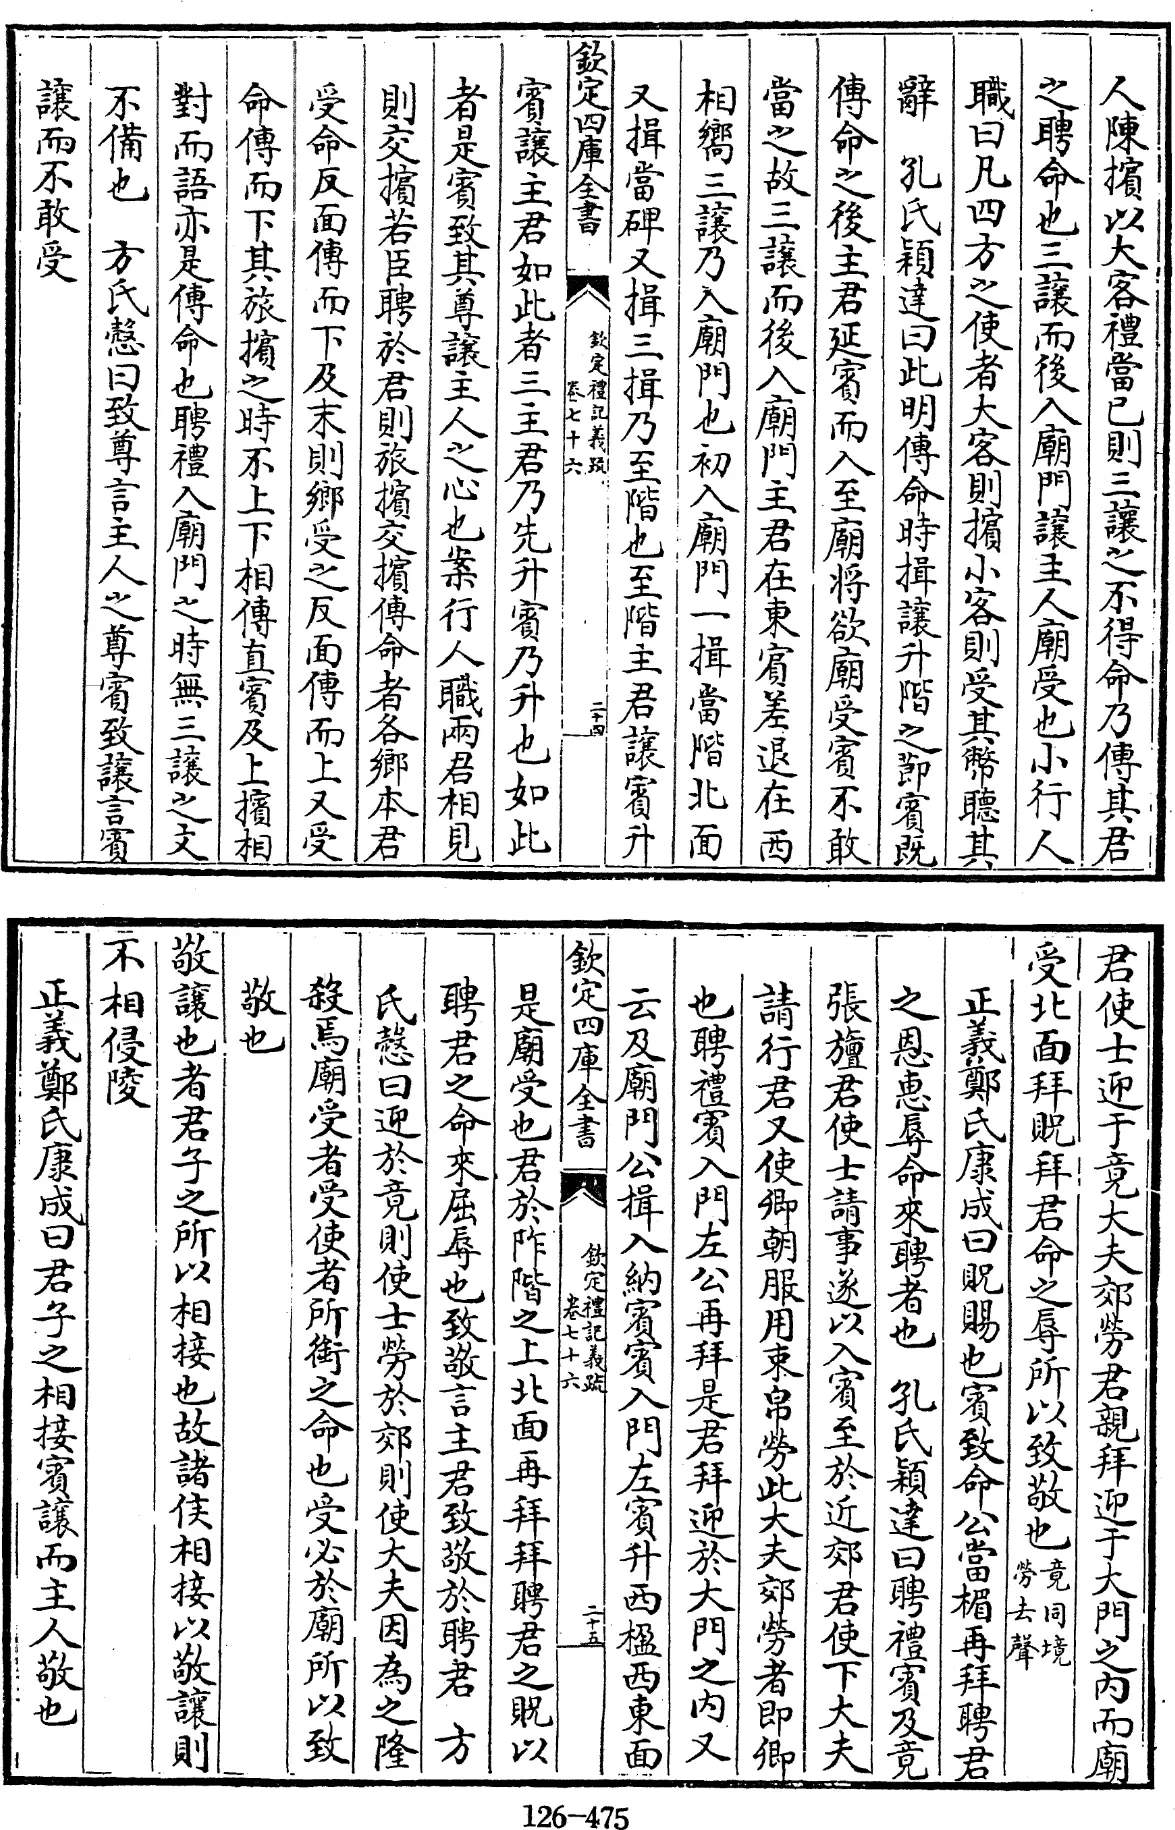 人陳擯以大客禮當已則三讓之不得命乃傳其君
之聘命也三讓而後入廟門讓主人廟受也小行人
職曰凡四方之使者大客則擯小客則受其幣聽其
辭　孔氏穎達曰此明傳命時揖讓升階之節賓既
傳命之後主君延賓而入至廟將欲廟受賓不敢
當之故三讓而後入廟門主君在東賓差退在西
相嚮三讓乃入廟門也初入廟門一揖當階北面
又揖當碑又揖三揖乃至階也至階主君讓賓升
欽定四庫全書
欽定禮記義疏
卷七十六
二十四
賓讓主君如此者三主君乃先升賓乃升也如此
者是賓致其尊讓主人之心也案行人職兩君相見
則交擯若臣聘於君則旅擯交擯傳命者各鄉本君
受命反面傳而下及末則鄉受之反面傳而上又受
命傳而下其旅擯之時不上下相傳直賓及上擯相
對而語亦是傳命也聘禮入廟門之時無三讓之文
不備也　方氏慤曰致尊言主人之尊賓致讓言賓
讓而不敢受
君使士迎于竟大夫郊勞君親拜迎于大門之內而廟
受北面拜貺拜君命之辱所以致敬也竟同境
勞去聲
正義鄭氏康成曰貺賜也賓致命公當楣再拜聘君
之恩惠辱命來聘者也　孔氏穎達曰聘禮賓及竟
張旜君使士請事遂以入賓至於近郊君使下大夫
請行君又使卿朝服用束帛勞此大夫郊勞者即卿
也聘禮賓入門左公再拜是君拜迎於大門之內又
云及廟門公揖入納賓賓入門左賓升西楹西東面
欽定四庫全書
欽定禮記義疏
卷七十六
二十五
是廟受也君於阼階之上北面再拜拜聘君之貺以
聘君之命來屈辱也致敬言主君致敬於聘君　方
氏慤曰迎於竟則使士勞於郊則使大夫因為之隆
殺焉廟受者受使者所銜之命也受必於廟所以致
敬也
敬讓也者君子之所以相接也故諸侯相接以敬讓則
不相侵陵
正義鄭氏康成曰君子之相接賓讓而主人敬也
126-475